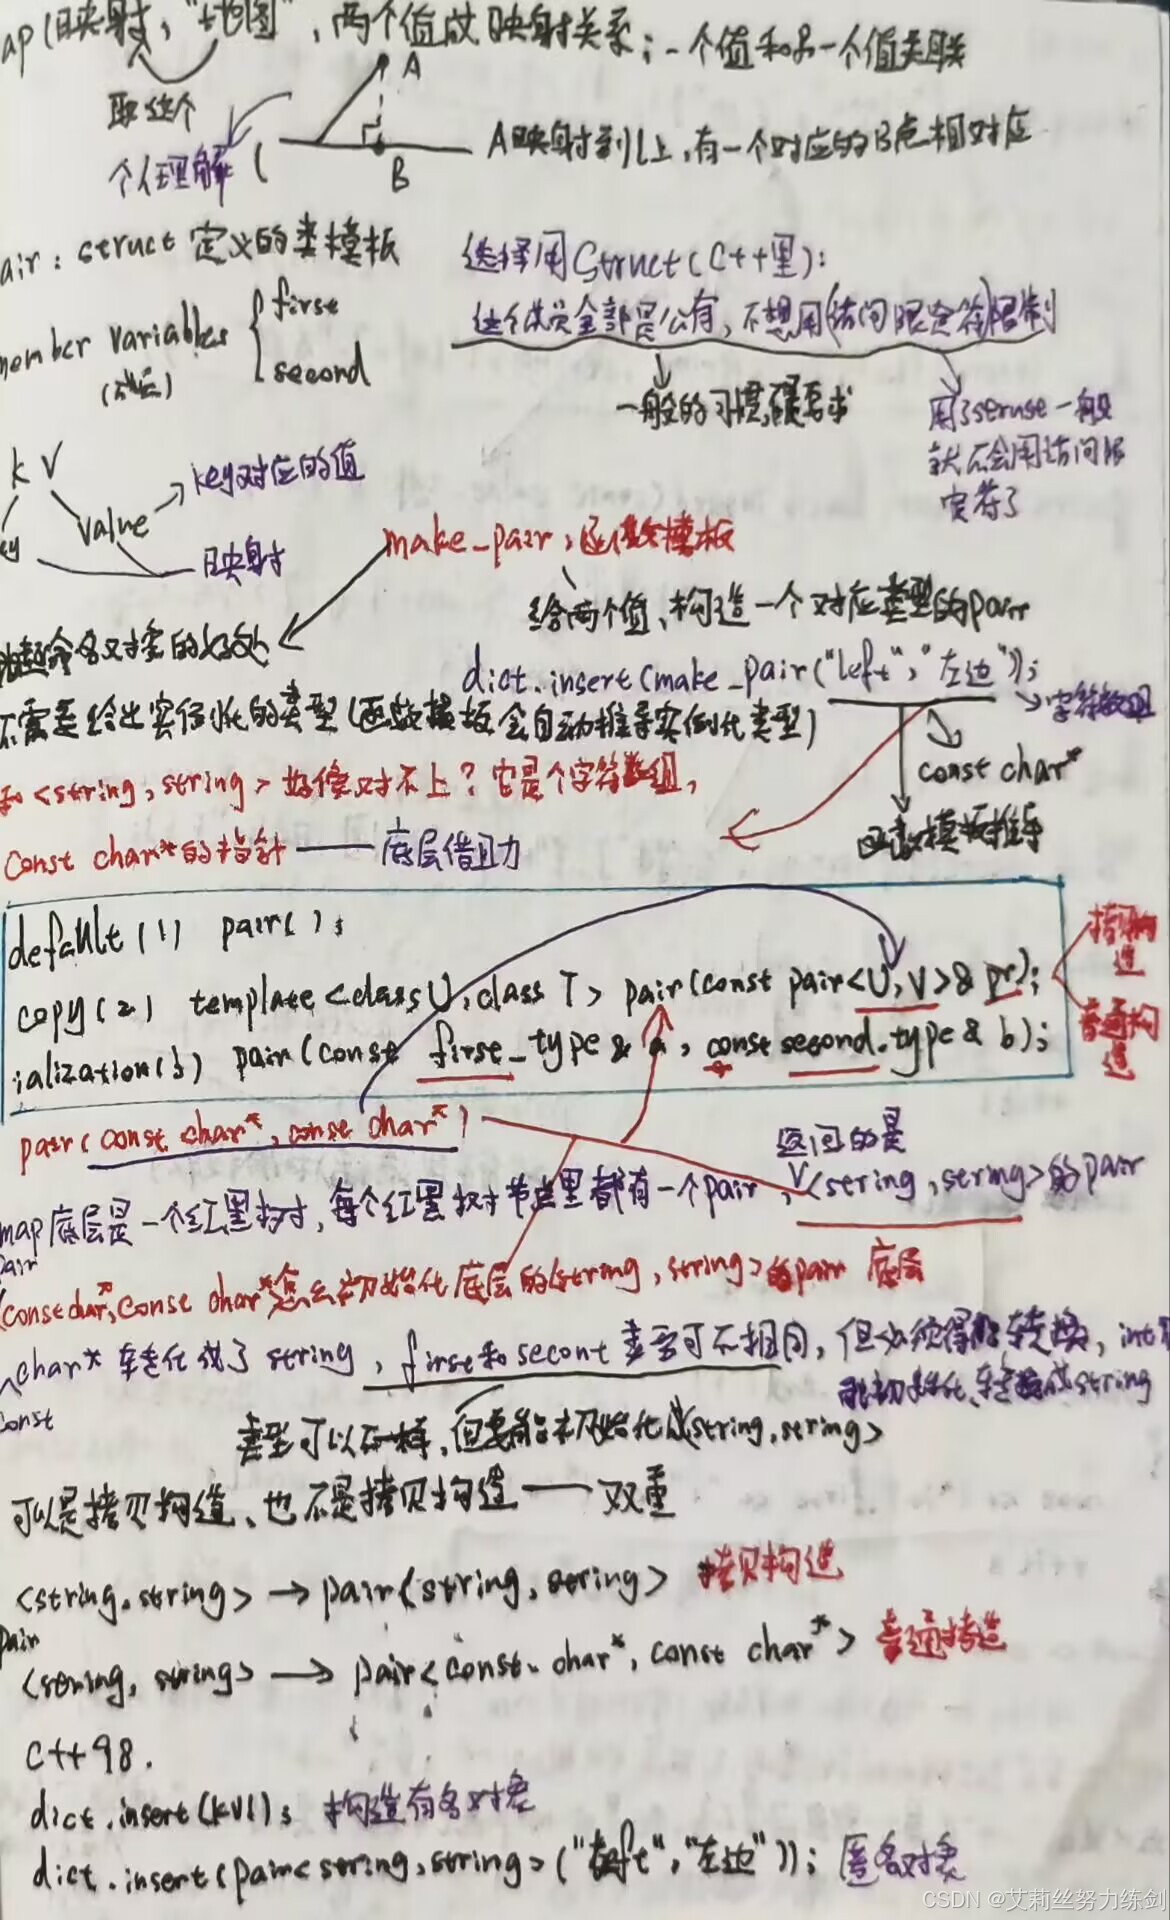 ap(映射,"地图",两个值成映射关系;一个值和另一个值关联
取这个
个人理解
A
l
B
A映射到l上,有一个对应的B点相对应
air:struct定义的类模板
选择用Struct(C++里):
member variables
first
second
这个成员全部是公有,不想用(访问限定符)限制
一般的习惯,
用了 一般
就不会用访问限
定符了
k V
value
key对应的值
映射
make_pair:函数模板
给两个值、构造一个对应类型的pair
对象的好处
dict.insert(make_pair("left","左边"));
字符数组
不需要给出实例化的类型(函数模板会自动推导实例化类型)
const char*
函数模板推导
和<string,string>好像对不上?它是个字符数组,
const char*的指针——底层借助力
default(1) pair();
copy(2) template<class U,class T> pair(const pair<U,V>& pr);
拷贝构造
ialization(3) pair(const first_type& a, const second_type& b);
普通构造
pair(const char*,const char*)
返回的是
map底层是一个红黑树,每个红黑树节点里都有一个pair,<string,string>的pair
pair
(const char*,const char*怎么初始化底层的<string,string>的pair 底层
char*转化成了string,first和secont类型可不相同,但必须得能转换,int
const
能初始化、转换成string
类型可以不一样,但要能初始化成<string,string>
可以是拷贝构造、也不是拷贝构造——双重
<string,string>→pair<string,string> 拷贝构造
pair
<string,string>→pair<const char*,const char*> 普通构造
C++98.
dict.insert(kv1); 构造有名对象
dict.insert(pair<string,string>("left","左边")); 匿名对象
CSDN @艾莉丝努力练剑